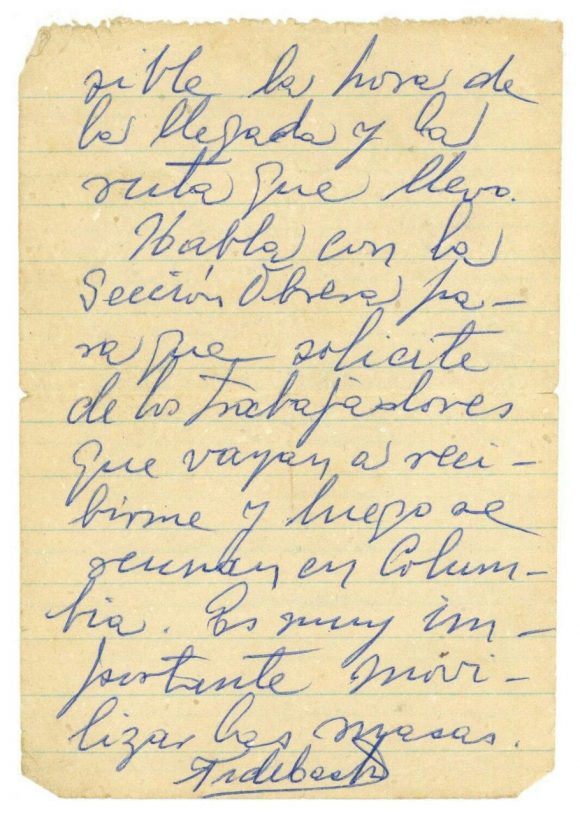 sible la hora de
la llegada y la
ruta que llevo.
Habla con la
Sección Obrera pa-
ra que solicite
de los trabajadores
que vayan a reci-
birme y luego se
reunan en Colum-
bia. Es muy im-
portante movi-
lizar las masas.
Fidel Castro